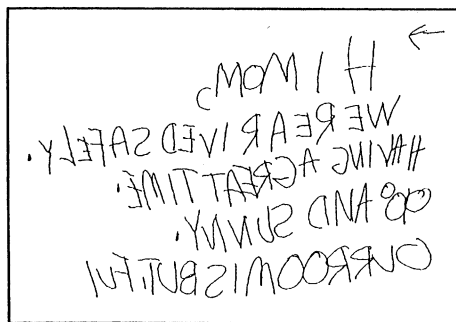 HI MOM,
WERE ARIVED SAFELY.
HAVING A GREAT TIME.
90° AND SUNNY.
OUR ROOM IS BUTIFUl